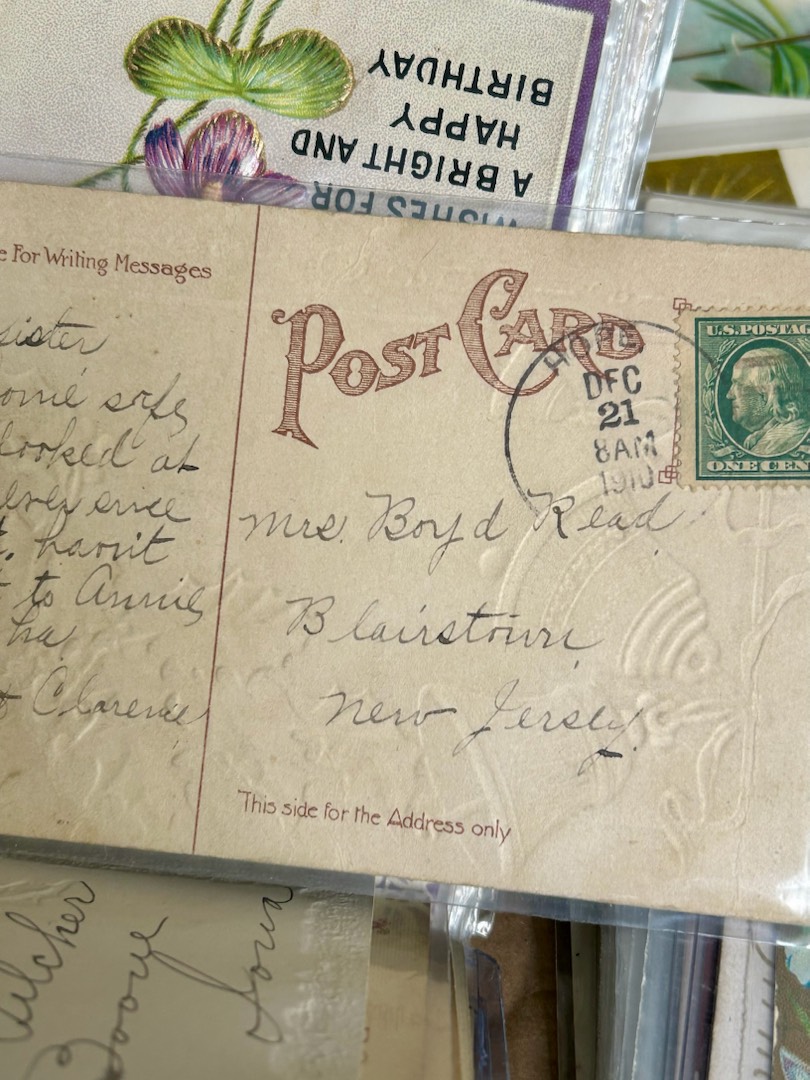 WISHES FOR
A BRIGHT AND
HAPPY
BIRTHDAY
e For Writing Messages
sister
ome safe
looked at
ever since
t. havit
t to Annie
ha
t Clarence
POST CARD
HOPE
DEC
21
8AM
1910
U.S. POSTAG
ONE CEN
Mrs. Boyd Read
Blairstown
New Jersey.
This side for the Address only
ilcher
Boone
Iowa